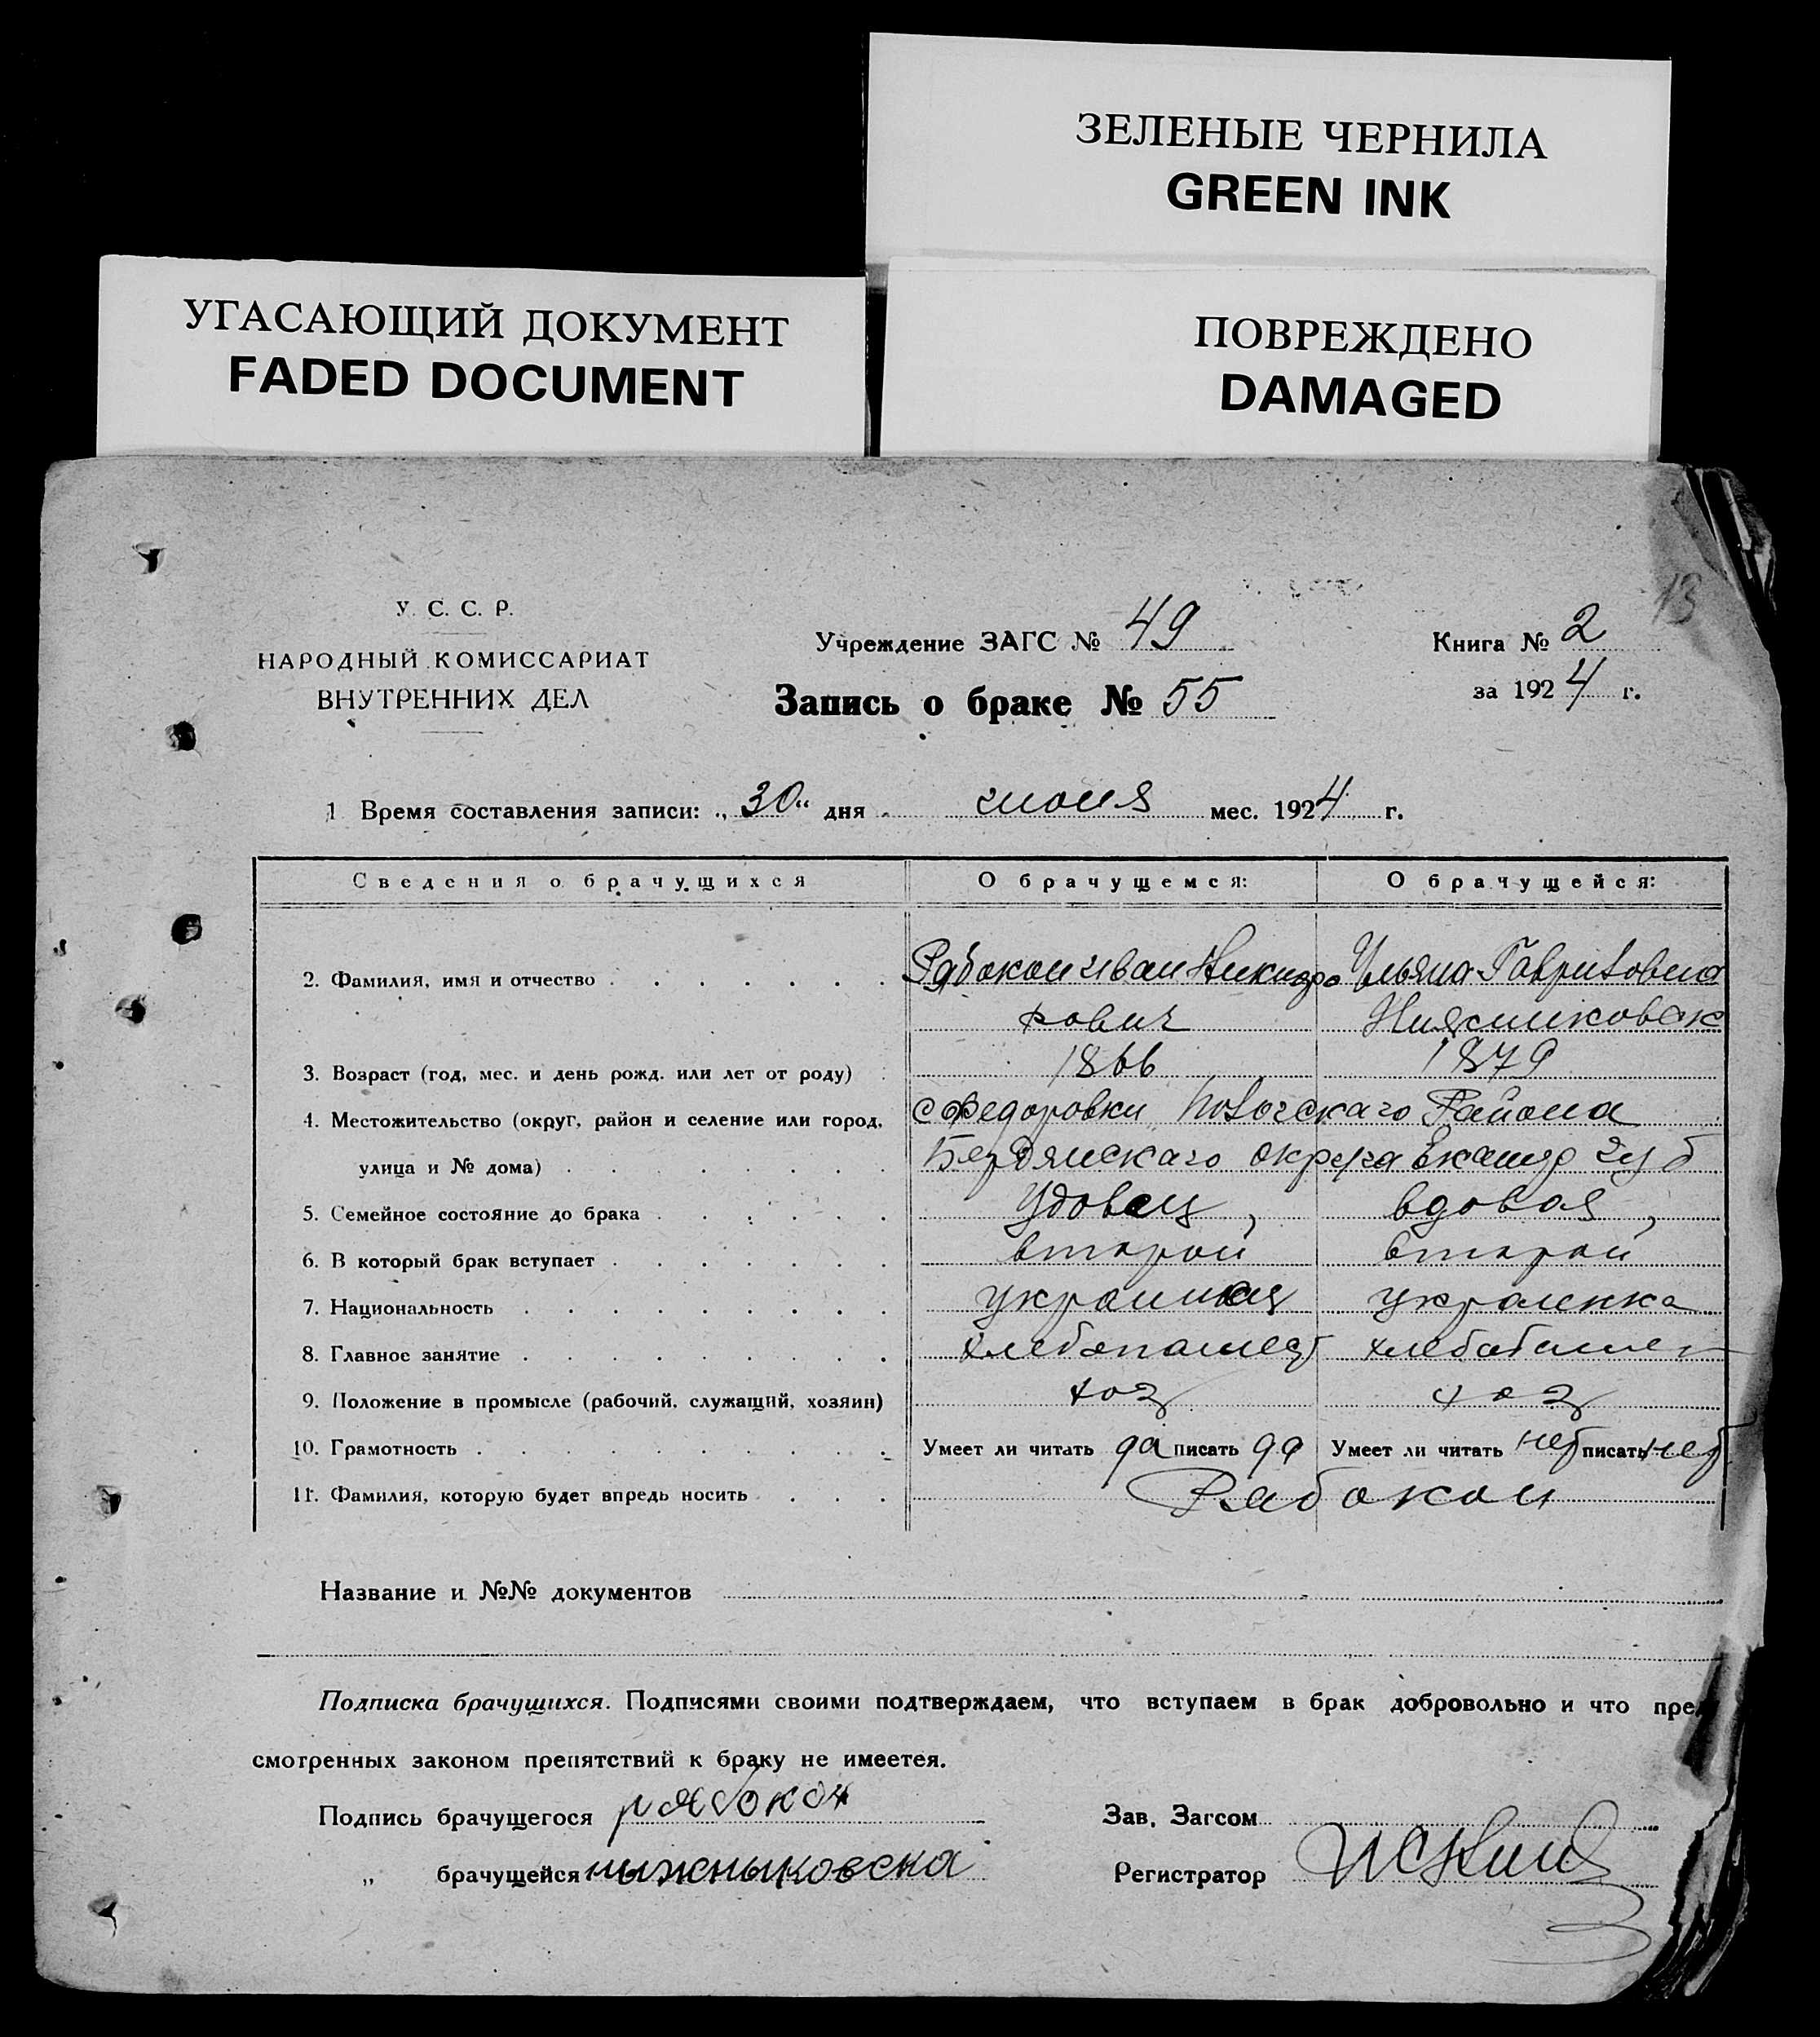 ЗЕЛЕНЫЕ ЧЕРНИЛА
GREEN INK
УГАСАЮЩИЙ ДОКУМЕНТ
FADED DOCUMENT
ПОВРЕЖДЕНО
DAMAGED
13
У. С. С. Р.
НАРОДНЫЙ КОМИССАРИАТ
ВНУТРЕННИХ ДЕЛ
Учреждение ЗАГС № 49
Книга № 2
Запись о браке № 55
за 1924 г.
1 Время составления записи: „30" дня июня мес. 1924 г.
Сведения о брачущихся О брачущемся: О брачущейся:
2. Фамилия, имя и отчество Рабокон Иван Никифо Ульяна Гавриловна
рович
3. Возраст (год, мес. и день рожд. или лет от роду) 1866 1879
4. Местожительство (округ, район и селение или город, с Федоровки Района
улица и № дома) Бердянскаго округа Екатер губ
5. Семейное состояние до брака Удовец, вдовая,
6. В который брак вступает второй второй
7. Национальность украинец украенка
8. Главное занятие хлебопашец
9. Положение в промысле (рабочий, служащий, хозяин) хоз хоз
10. Грамотность Умеет ли читать да писать да Умеет ли читать нет писать нет
11. Фамилия, которую будет впредь носить Рабокон
Название и №№ документов
Подписка брачущихся. Подписями своими подтверждаем, что вступаем в брак добровольно и что пред
смотренных законом препятствий к браку не имеетея.
Подпись брачущегося рябокон
Зав. Загсом
„ брачущейся ныжныковска
Регистратор